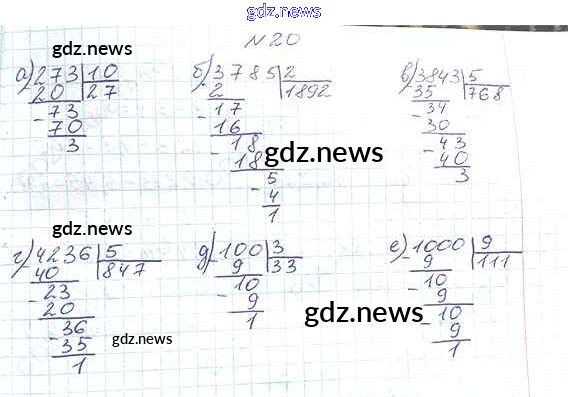 gdz.news
№20
gdz.news
а) 273 | 10
20 | 27
- 73
70
3
б) 3785 | 2
2 | 1892
- 17
16
- 18
18
5
- 4
1
в) 3843 | 5
35 | 768
- 34
30
- 43
40
3
gdz.news
gdz.news
г) 4236 | 5
40 | 847
- 23
20
- 36
35
1
gdz.news
д) 100 | 3
9 | 33
- 10
9
1
е) - 1000 | 9
9 | 111
- 10
9
- 10
9
1
gdz.news